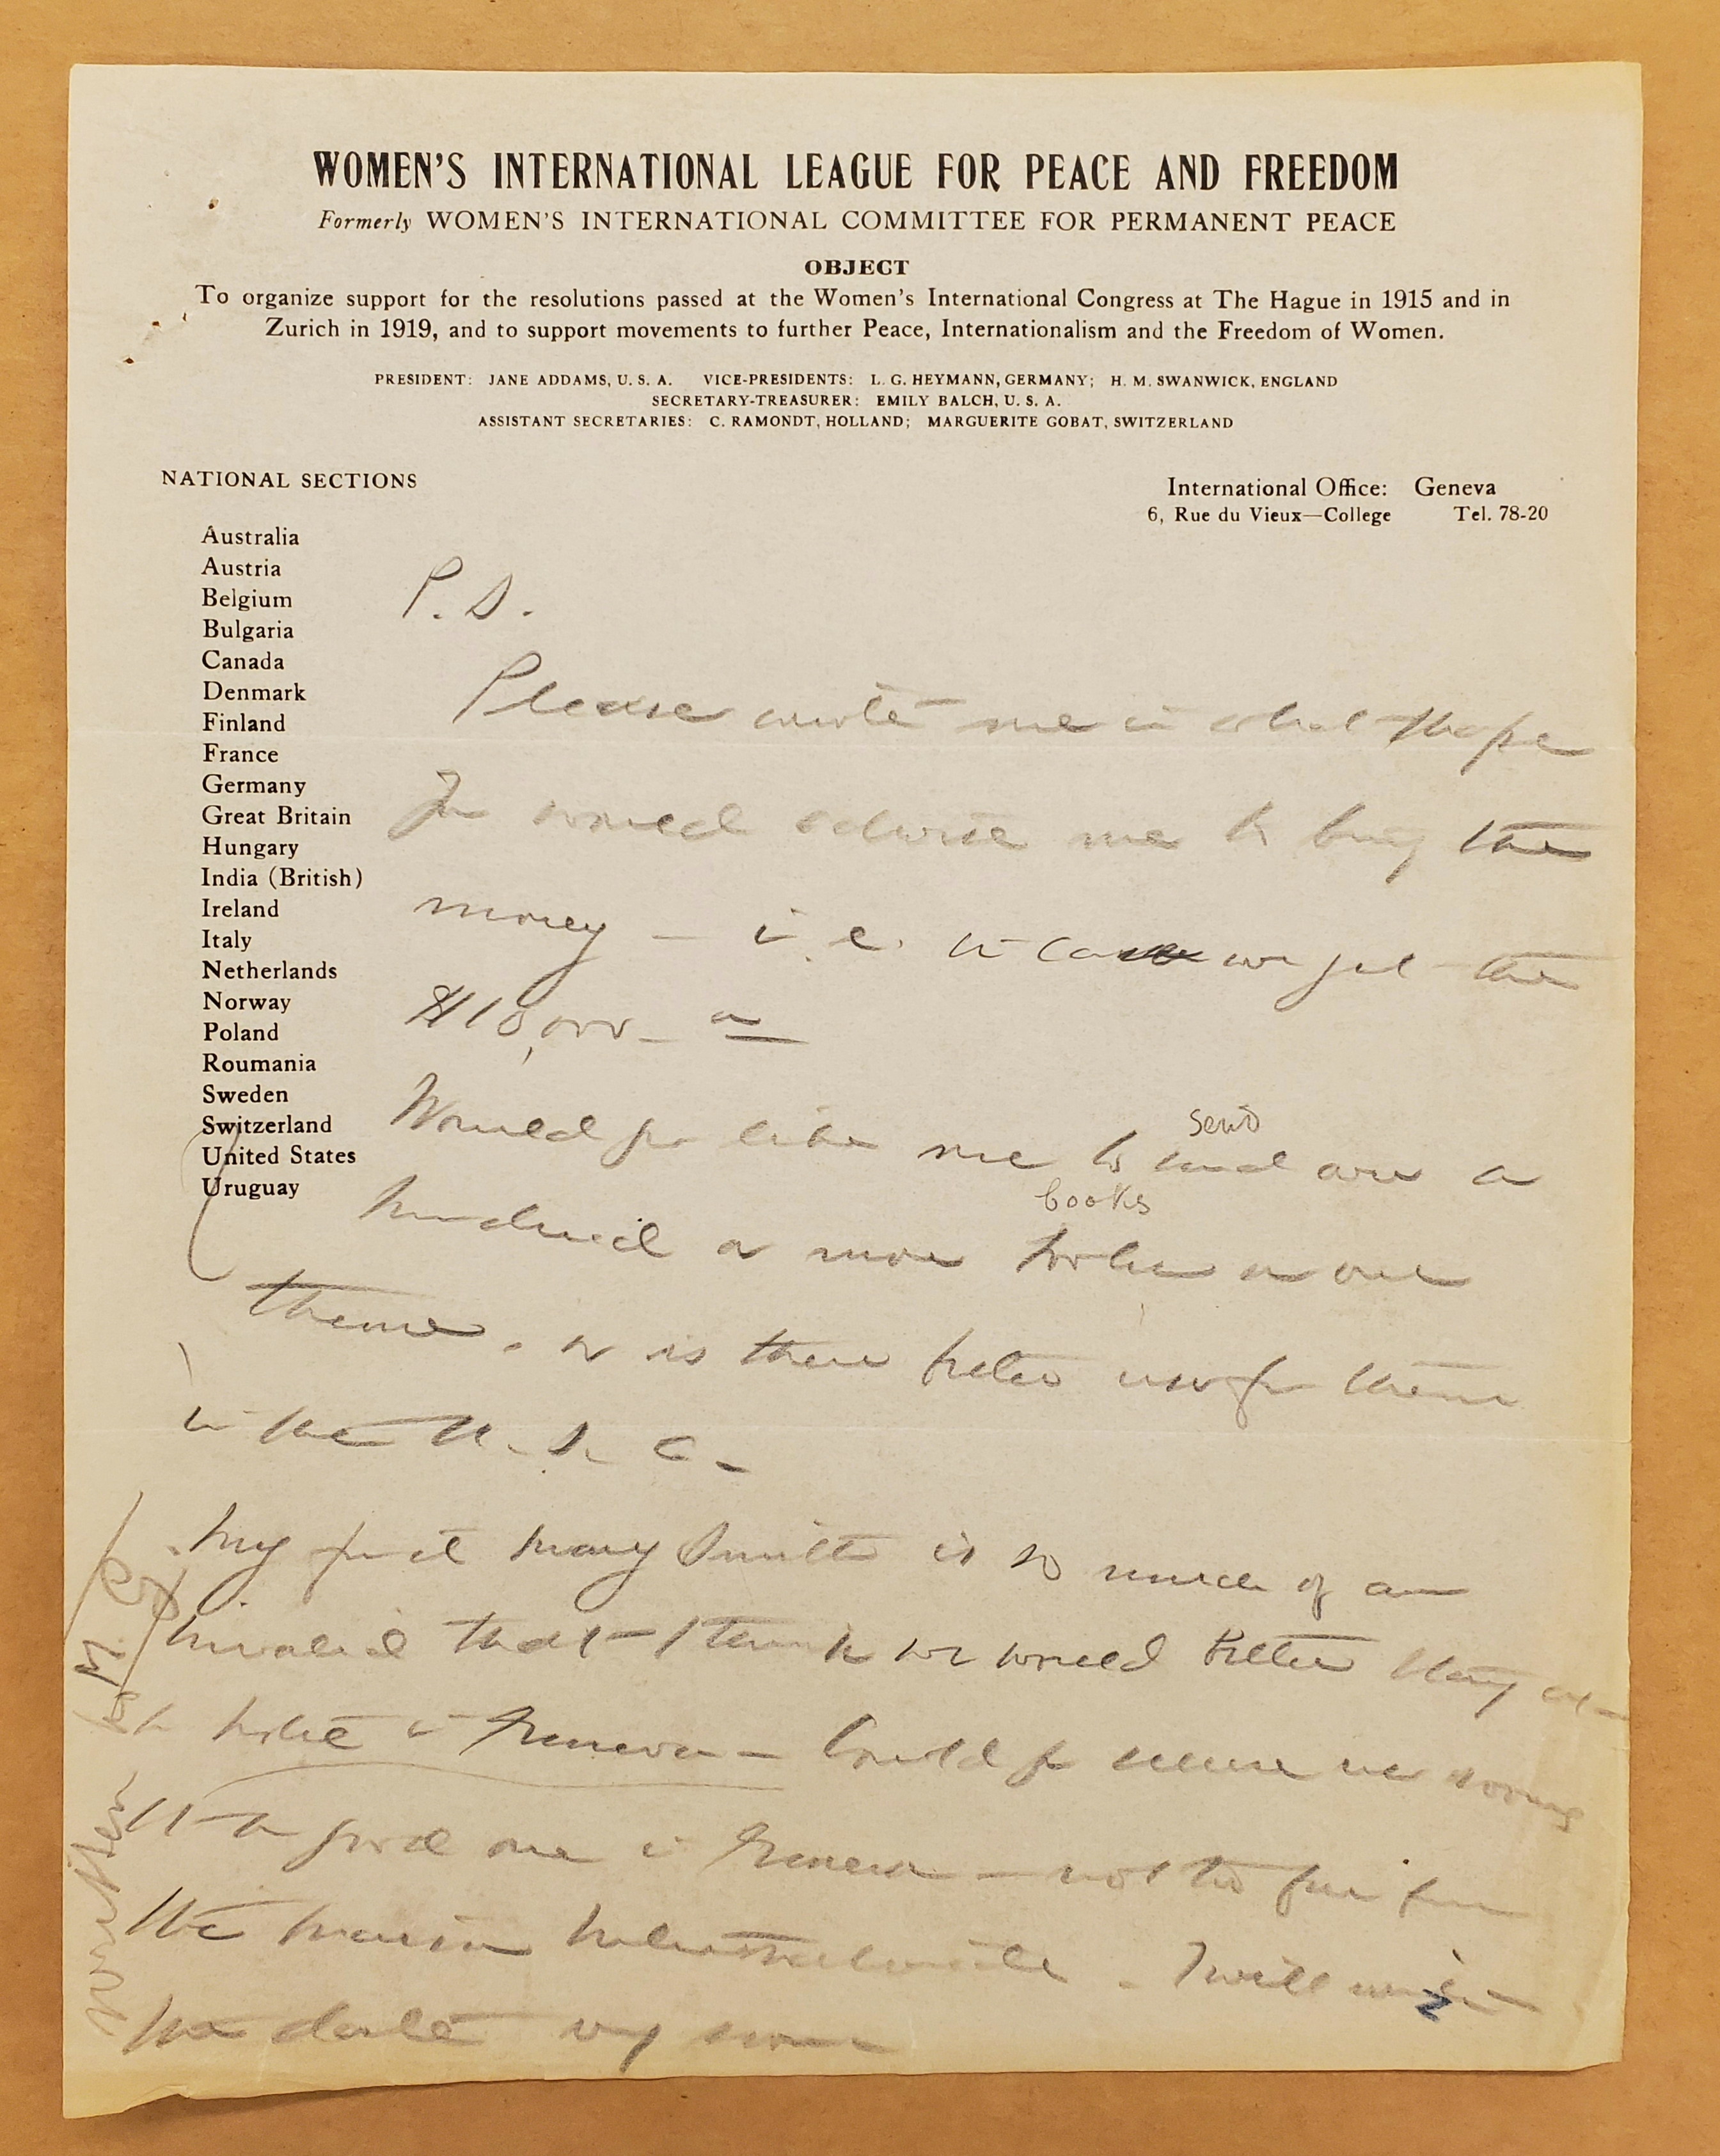 WOMEN'S INTERNATIONAL LEAGUE FOR PEACE AND FREEDOM
Formerly WOMEN'S INTERNATIONAL COMMITTEE FOR PERMANENT PEACE
OBJECT
To organize support for the resolutions passed at the Women's International Congress at The Hague in 1915 and in
Zurich in 1919, and to support movements to further Peace, Internationalism and the Freedom of Women.
PRESIDENT: JANE ADDAMS, U. S. A. VICE-PRESIDENTS: L. G. HEYMANN, GERMANY; H. M. SWANWICK, ENGLAND
SECRETARY-TREASURER: EMILY BALCH, U. S. A.
ASSISTANT SECRETARIES: C. RAMONDT, HOLLAND; MARGUERITE GOBAT, SWITZERLAND
NATIONAL SECTIONS
International Office: Geneva
6, Rue du Vieux—College Tel. 78-20
Australia
Austria
Belgium
Bulgaria
Canada
Denmark
Finland
France
Germany
Great Britain
Hungary
India (British)
Ireland
Italy
Netherlands
Norway
Poland
Roumania
Sweden
Switzerland
United States
Uruguay
P.S.
Please write me in what shape
you would advise me to bring the
money – i.e. in case we get the
$10,000
send
Would you like me to send over a
books
hundred or more books on our
theme, or is there better use for them
in the U.S.A.
My friend Mary Smith is so much of an
invalid that I think we would better stay at
hotel in Geneva – Could you secure us rooms
at a good one in Geneva – not too far from
the maison internationale. I will write
the date very soon